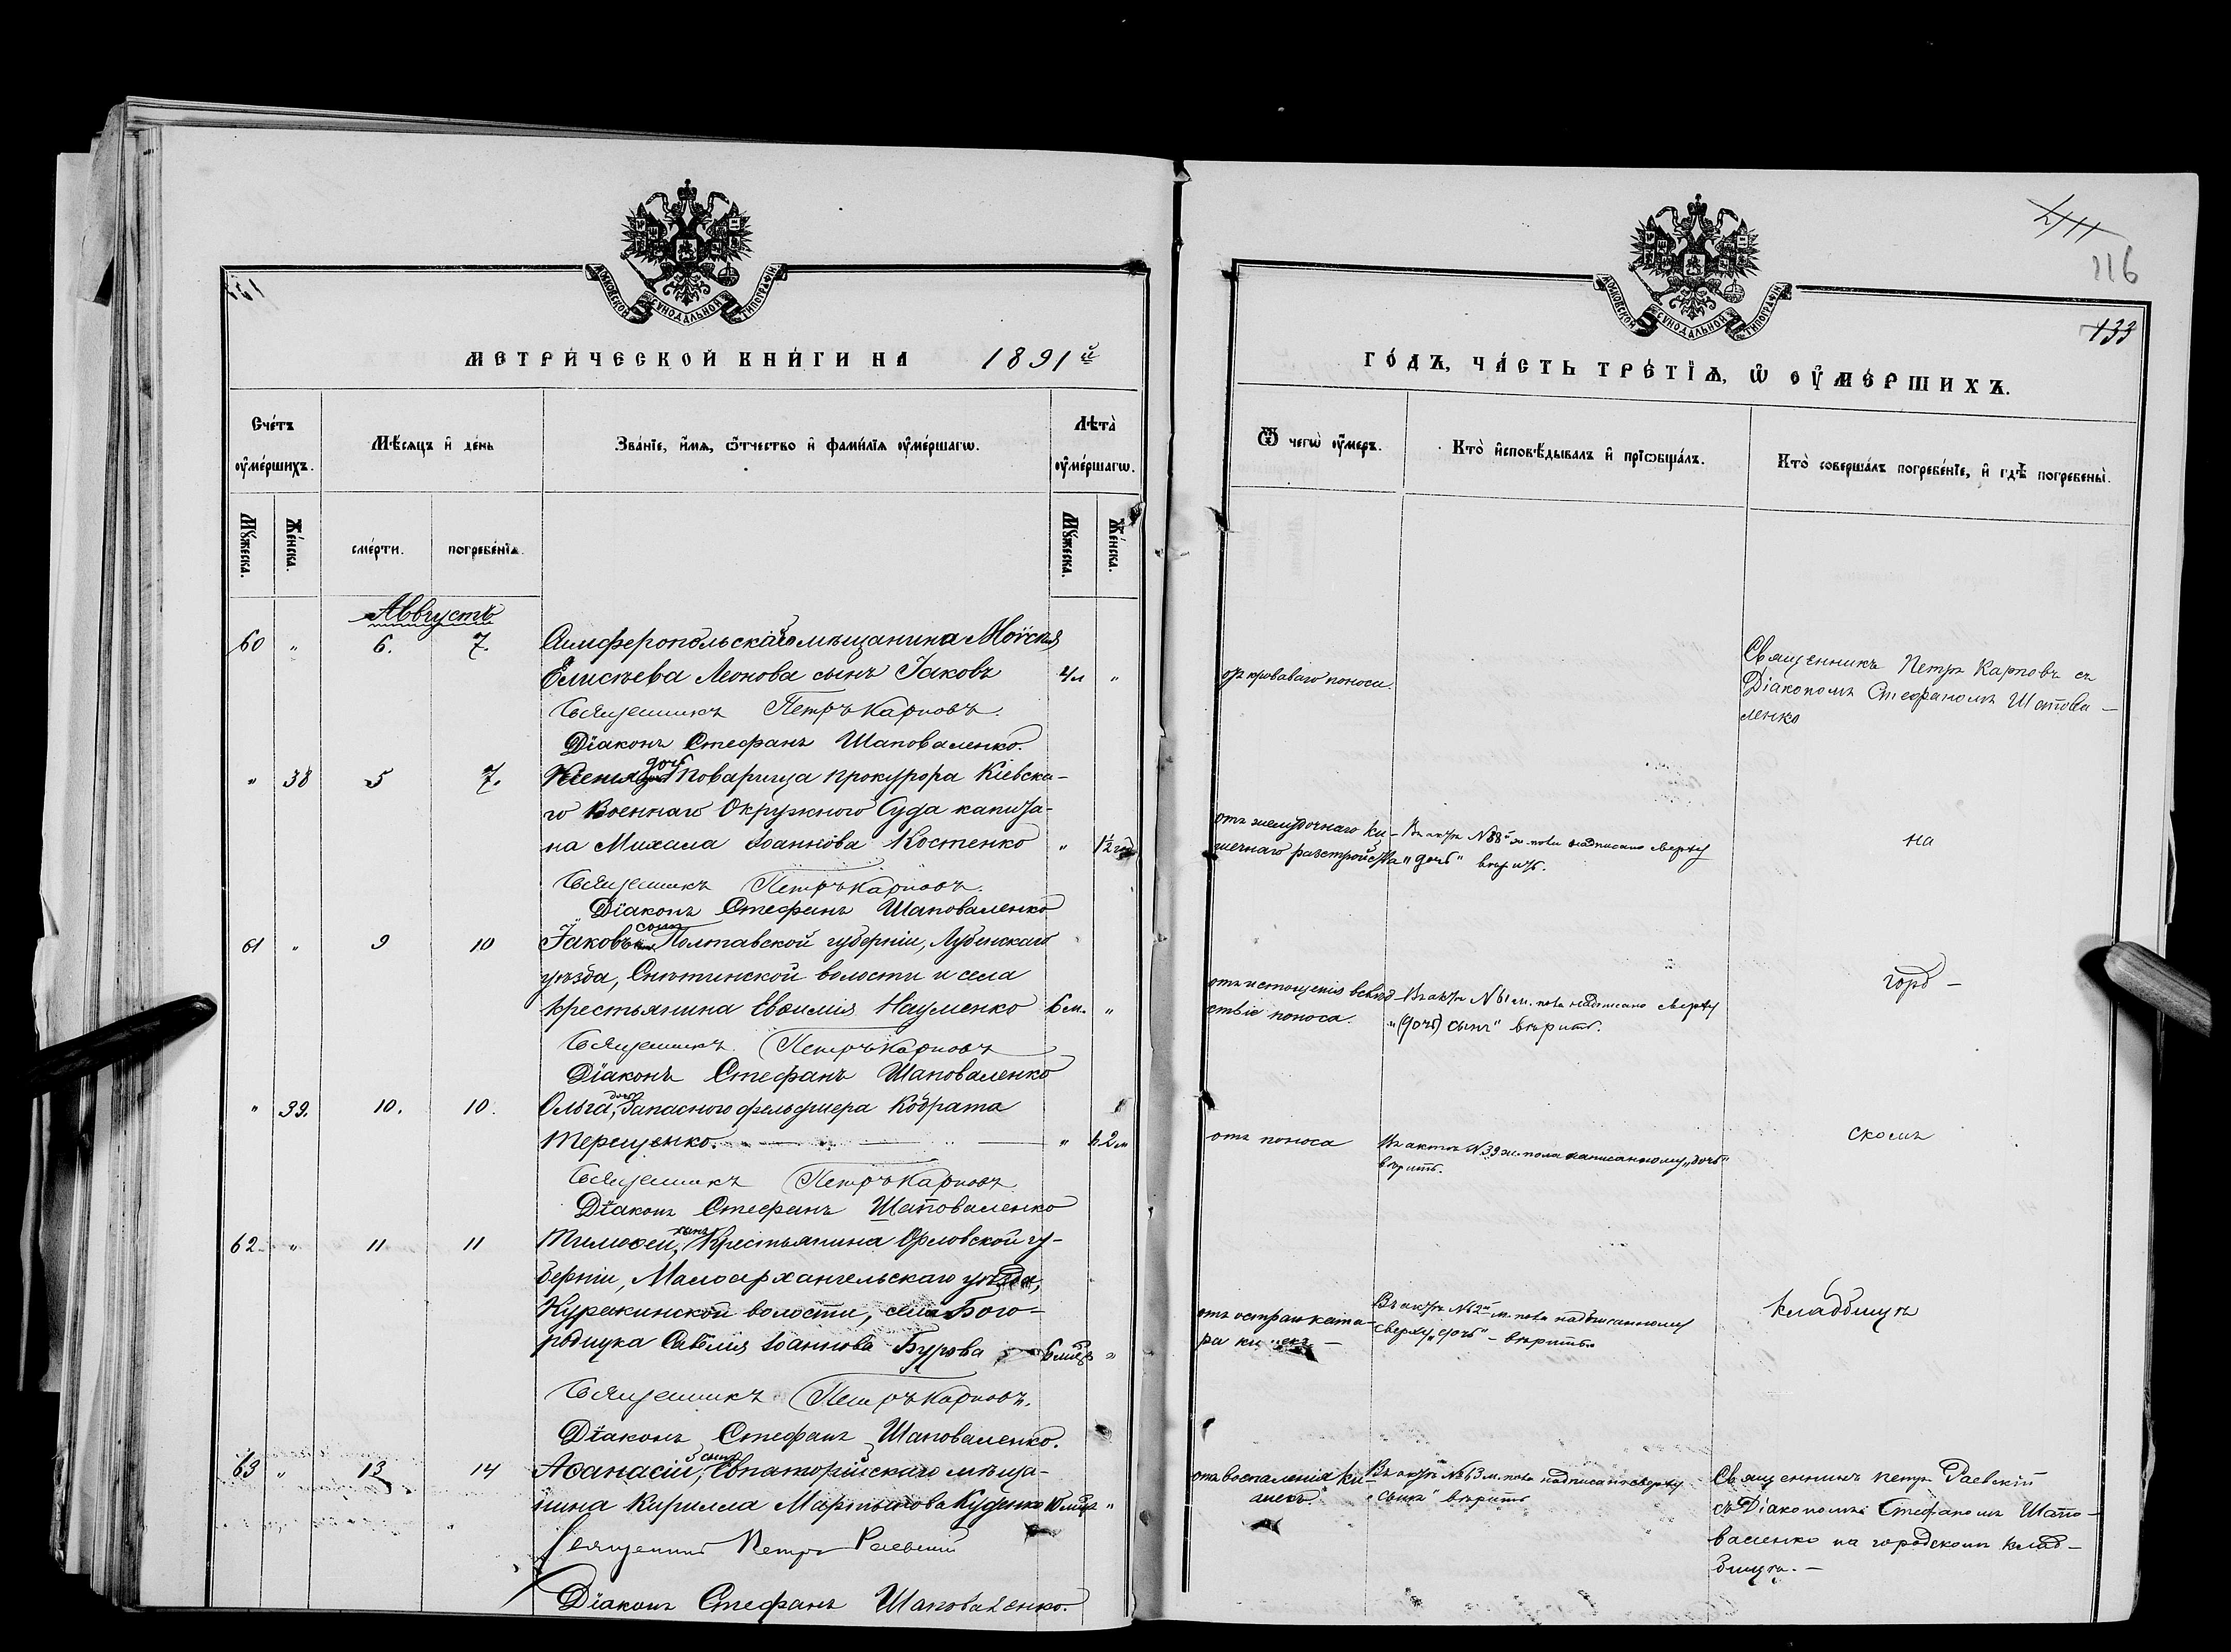 МОСКОВСКОЙ СѴНОДАЛЬНОЙ ТИПОГРАФІИ
МЕТРИ́ЧЕСКОЙ КНИ́ГИ НА 1891й
Счéтъ ᲂу҆мéршихъ.
Мѣ́сяцъ и҆ дéнь
Звáнїе, и҆́мѧ, ѻ҆́тчество и҆ фами́лїѧ ᲂу҆мéршагѡ.
Лѣтà ᲂу҆мéршагѡ.
Мꙋ́жеска.
Жéнска.
смéрти.
погребéнїѧ.
Мꙋ́жеска.
Жéнска.
Аввгустъ
60 " 6. 7. Симферопольскаго мѣщанина Моѵсея
Елисѣева Леонова сынъ Іаковъ "
Священникъ Петръ Карповъ.
Діаконъ Стефанъ Шаповаленко.
" 38 5 7. Ксенія дочь Товарища прокурора Кіевска-
го Военнаго Окружнаго Суда капита-
на Михаила Іоаннова Костенко " 1½ год
Священникъ Петръ Карповъ.
Діаконъ Стефанъ Шаповаленко
61 " 9 10 Іаковъ сынъ Полтавской губерніи, Лубенскаго
уѣзда, Снѣтинской волости и села
крестьянина Евѳимія Науменко 6 м. "
Священникъ Петръ Карповъ
Діаконъ Стефанъ Шаповаленко
" 39. 10. 10. Ольга, дочь Запаснаго фельдшера Кодрата
Терещенко. " 2 м
Священникъ Петръ Карповъ
Діаконъ Стефанъ Шаповаленко
62 " 11 11 Тимоѳей, сынъ Крестьянина Орловской гу-
берніи, Малоархангельскаго уѣзда,
Куракинской волости, села Бого-
родицка Савелія Іоаннова Бурова 6 мѣс "
Священникъ Петръ Карповъ.
Діаконъ Стефанъ Шаповаленко.
63 " 13 14 Аѳанасій, сынъ Евпаторійскаго мѣща-
нина Кирилла Мартынова Куценко 10 мѣс "
Священникъ Петръ Раевскій
Діаконъ Стефанъ Шаповаленко.
116
133
МОСКОВСКОЙ СѴНОДАЛЬНОЙ ТИПОГРАФІИ
ГО́ДЪ, ЧА́СТЬ ТРЕ́ТЇѦ, Ѡ҆ ОУ҆МЕ́РШИХЪ.
Ѿ чегѡ̀ ᲂу҆́меръ.
Ктò и҆сповѣ́дывалъ и҆ прїѡбщáлъ.
Ктò совершáлъ погребéнїе, и҆ гдѣ̀ погребены̀.
отъ кроваваго поноса.
Священникъ Петръ Карповъ съ
Діакономъ Стефаномъ Шапова-
ленко
отъ желудочнаго ки-
шечнаго разстройства
Въ актѣ № 38й ж. пола надписано сверху
"дочь" вѣрить.
на
отъ истощенія вслѣд-
ствіе поноса.
Въ актѣ № 61 м. пола надписано сверху
"(дочь) сынъ" вѣрить.
город-
отъ поноса
Въ актѣ № 39 ж. пола написанному "дочь"
вѣрить.
скомъ
отъ остраго ката-
ра ки
Въ актѣ № 62й м. пола надписанному
сверху "дочь" - вѣрить.
кладбищѣ
отъ воспаленія ки-
шекъ.
Въ актѣ № 63 м. пола надписано сверху
"сынъ" вѣрить
Священникъ Петръ Раевскій
съ Діакономъ Стефаномъ Шапо-
валенко на городскомъ клад-
бищѣ. -